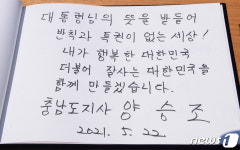 대통령님의 뜻을 받들어
반칙과 특권이 없는 세상!
내가 행복한 대한민국
더불어 잘사는 대한민국을
함께 만들겠습니다.
충남도지사 양승조
2021. 5. 22.
뉴스1